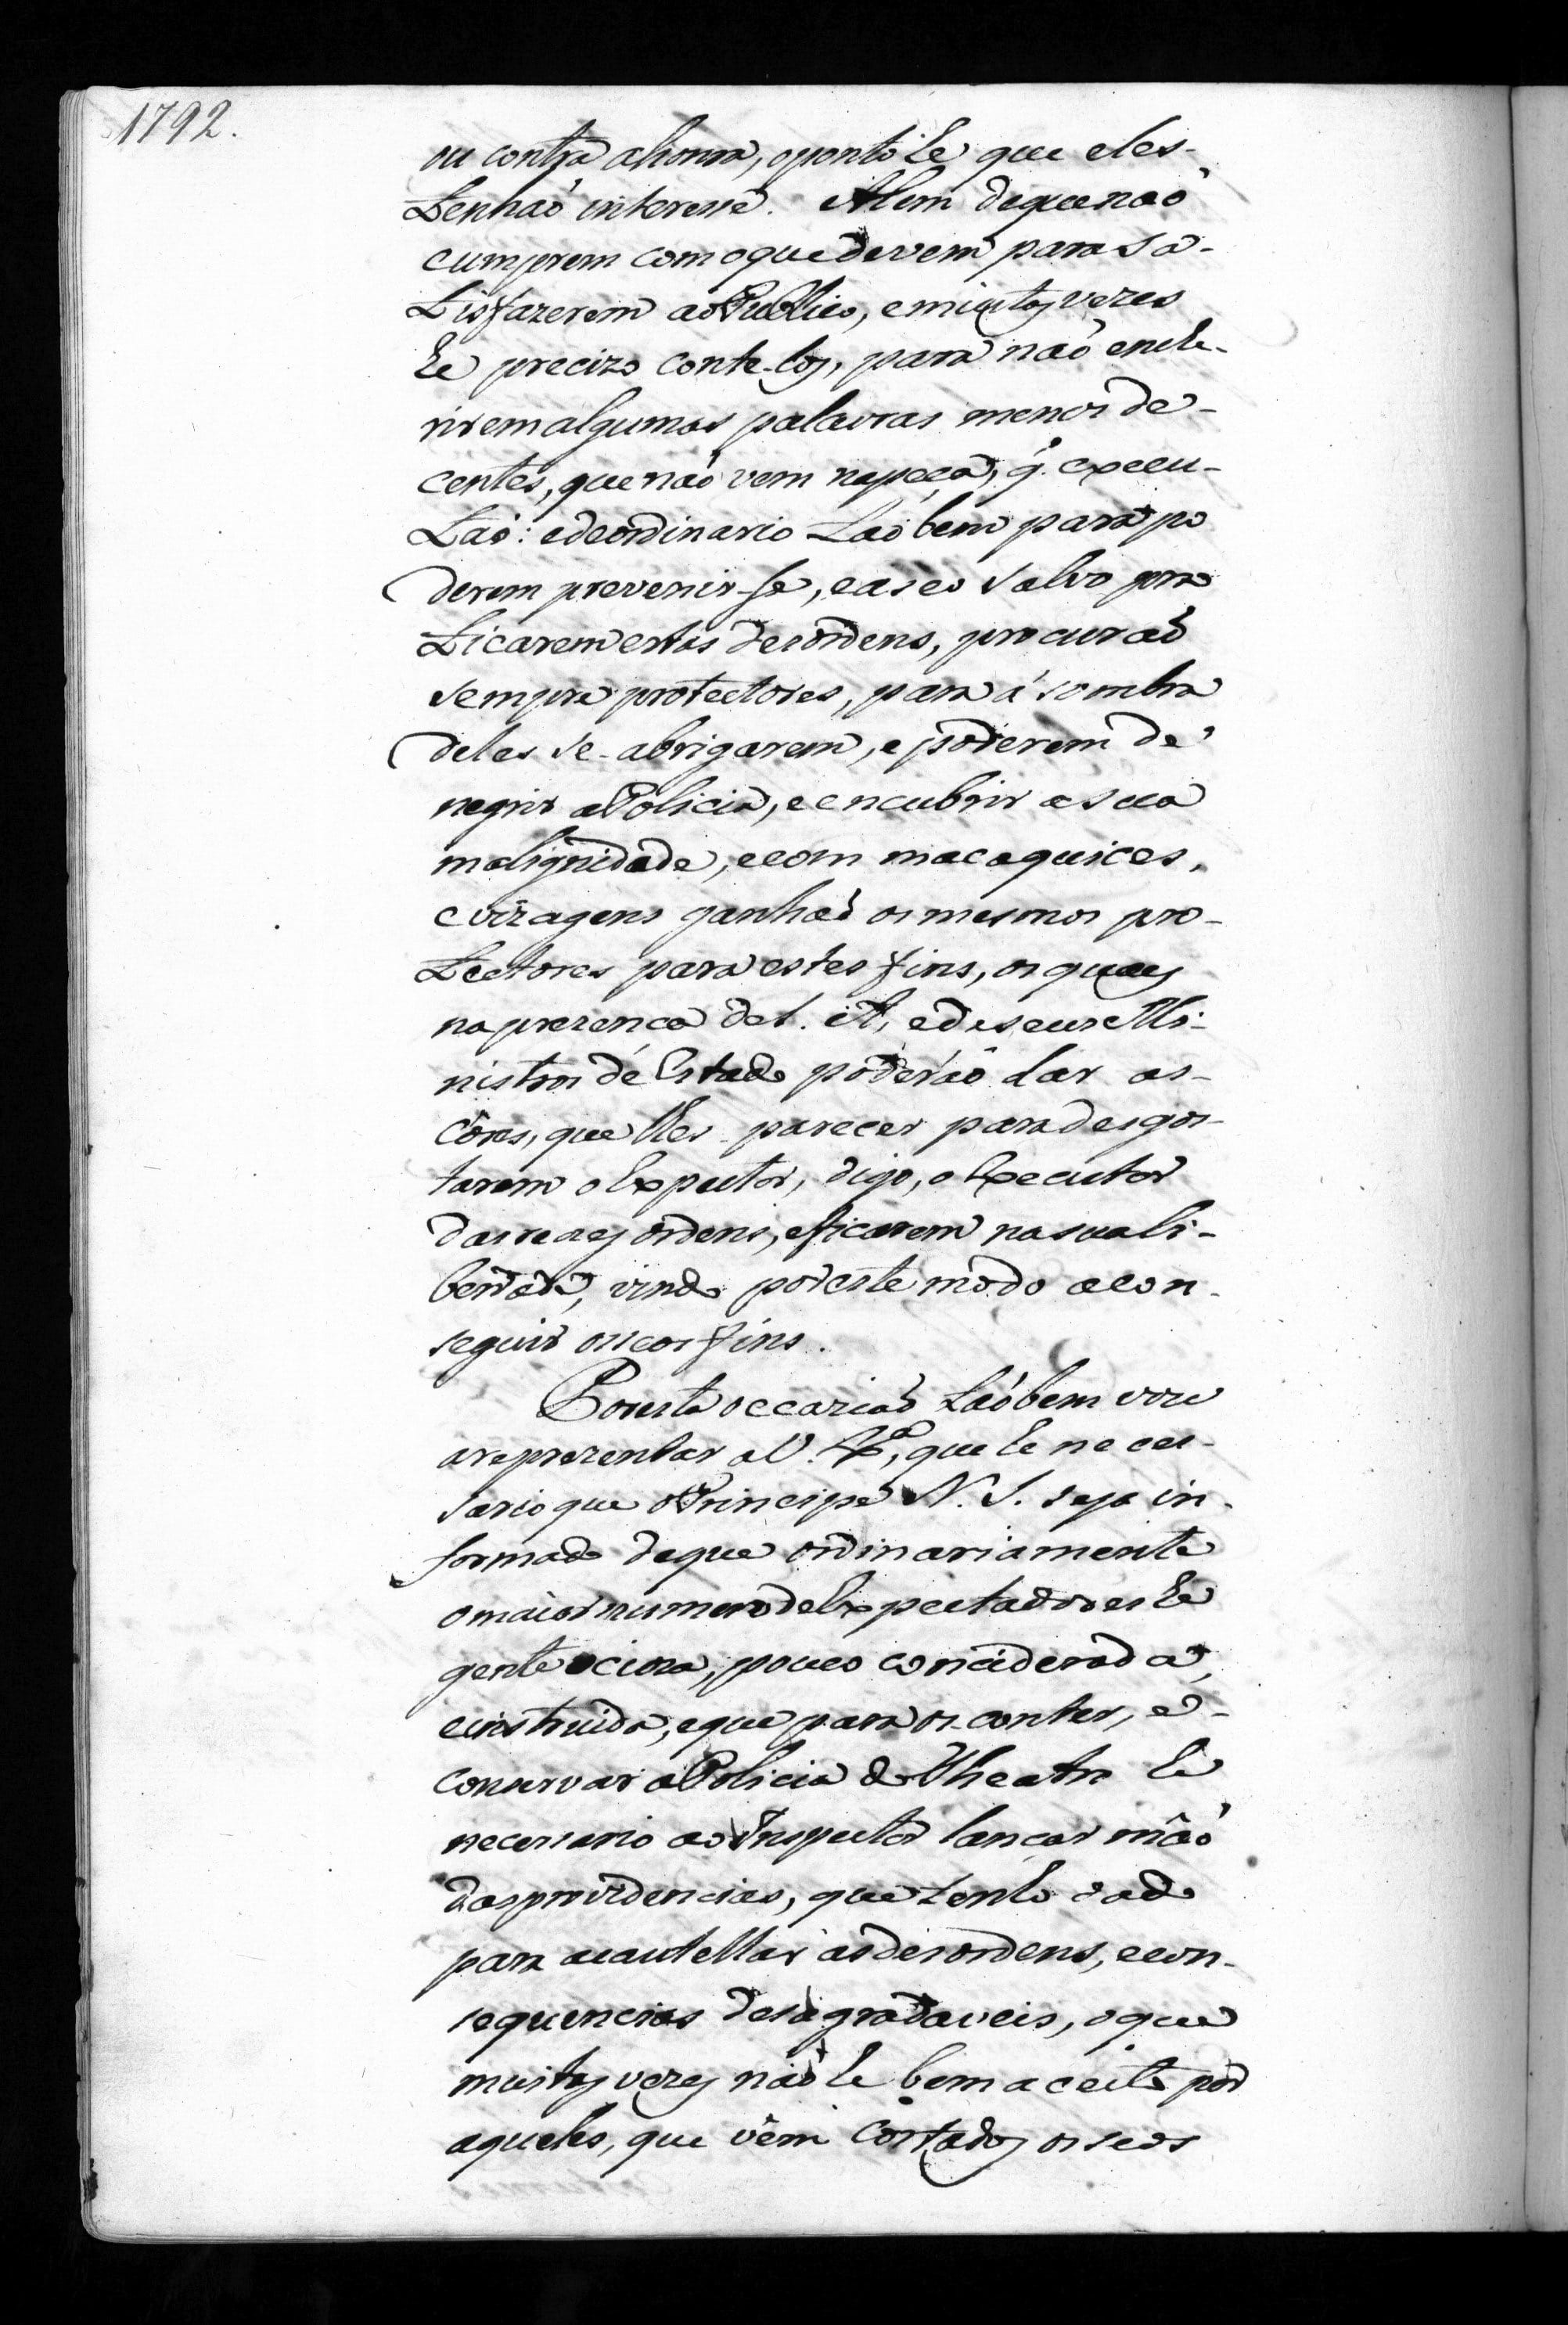 1792.
ou contra a honra, o ponto he que eles
tenhaõ interesse. Alem de que naõ
cumprem com o que devem para sa-
tisfazerem ao Publico, e muitas vezes
he precizo conte-los, para naõ enche-
rirem algumas palavras menos de-
centes, que naõ vem na peça, q. execu-
taõ: e de ordinario taõbem para po
derem prevenir-se, e a seo salvo pra
ticarem estas desordens, procuraõ
sempre protectores, para á sombra
deles se-abrigarem, e poderem de
negrir a Policia, e encubrir a sua
malignidade, e com macaquices,
e vizagens ganhaõ os mesmos pro-
tectores para estes fins, os quaes
na prezença de S. A, e de seus Mi-
nistros de Estado poderáõ dar as-
côres, que lhes parecer para desgos-
tarem o Expector, digo, o Executor
das reaes ordens, e ficarem na sua li-
berdade, vindo por este modo a con-
seguir os seos fins.
Por esta occaziaõ taõbem vou
a reprezentar a V. Exª, que he neces-
sario que o Principe N. S. seja in-
formado de que ordinariamente
o maior numero de Expectadores he
gente ocioza, pouco conciderada,
e instruida, e que para os-conter, e-
conservar a Policia do Theatro he
necessario ao Inspector lançar mâõ
das providencias, que tenho dado
para acautellar as desordens, e con-
sequencias desagradaveis, o que
muitas vezes naõ he bem aceito por
aqueles, que vêm cortados os seos